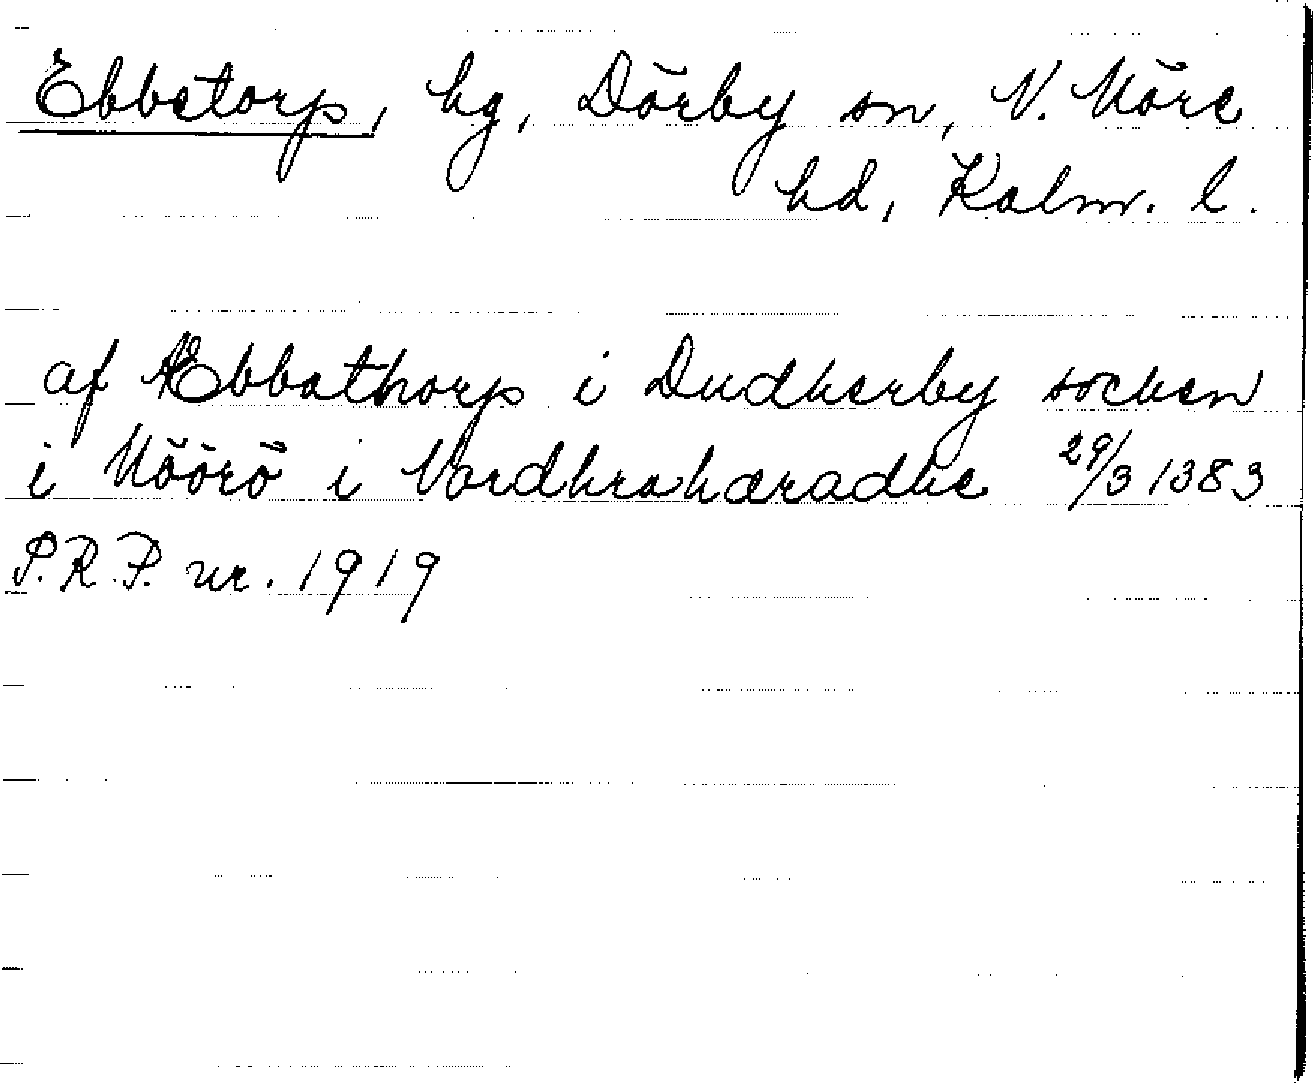 Ebbetorp, hg, Dörby sn, N. Möre
hd, Kalm. l.
af Æbbathorp i Dudherby socken
i Möörö i Nordhrahæradhe 29/3 1383
S.R.P. nr. 1919